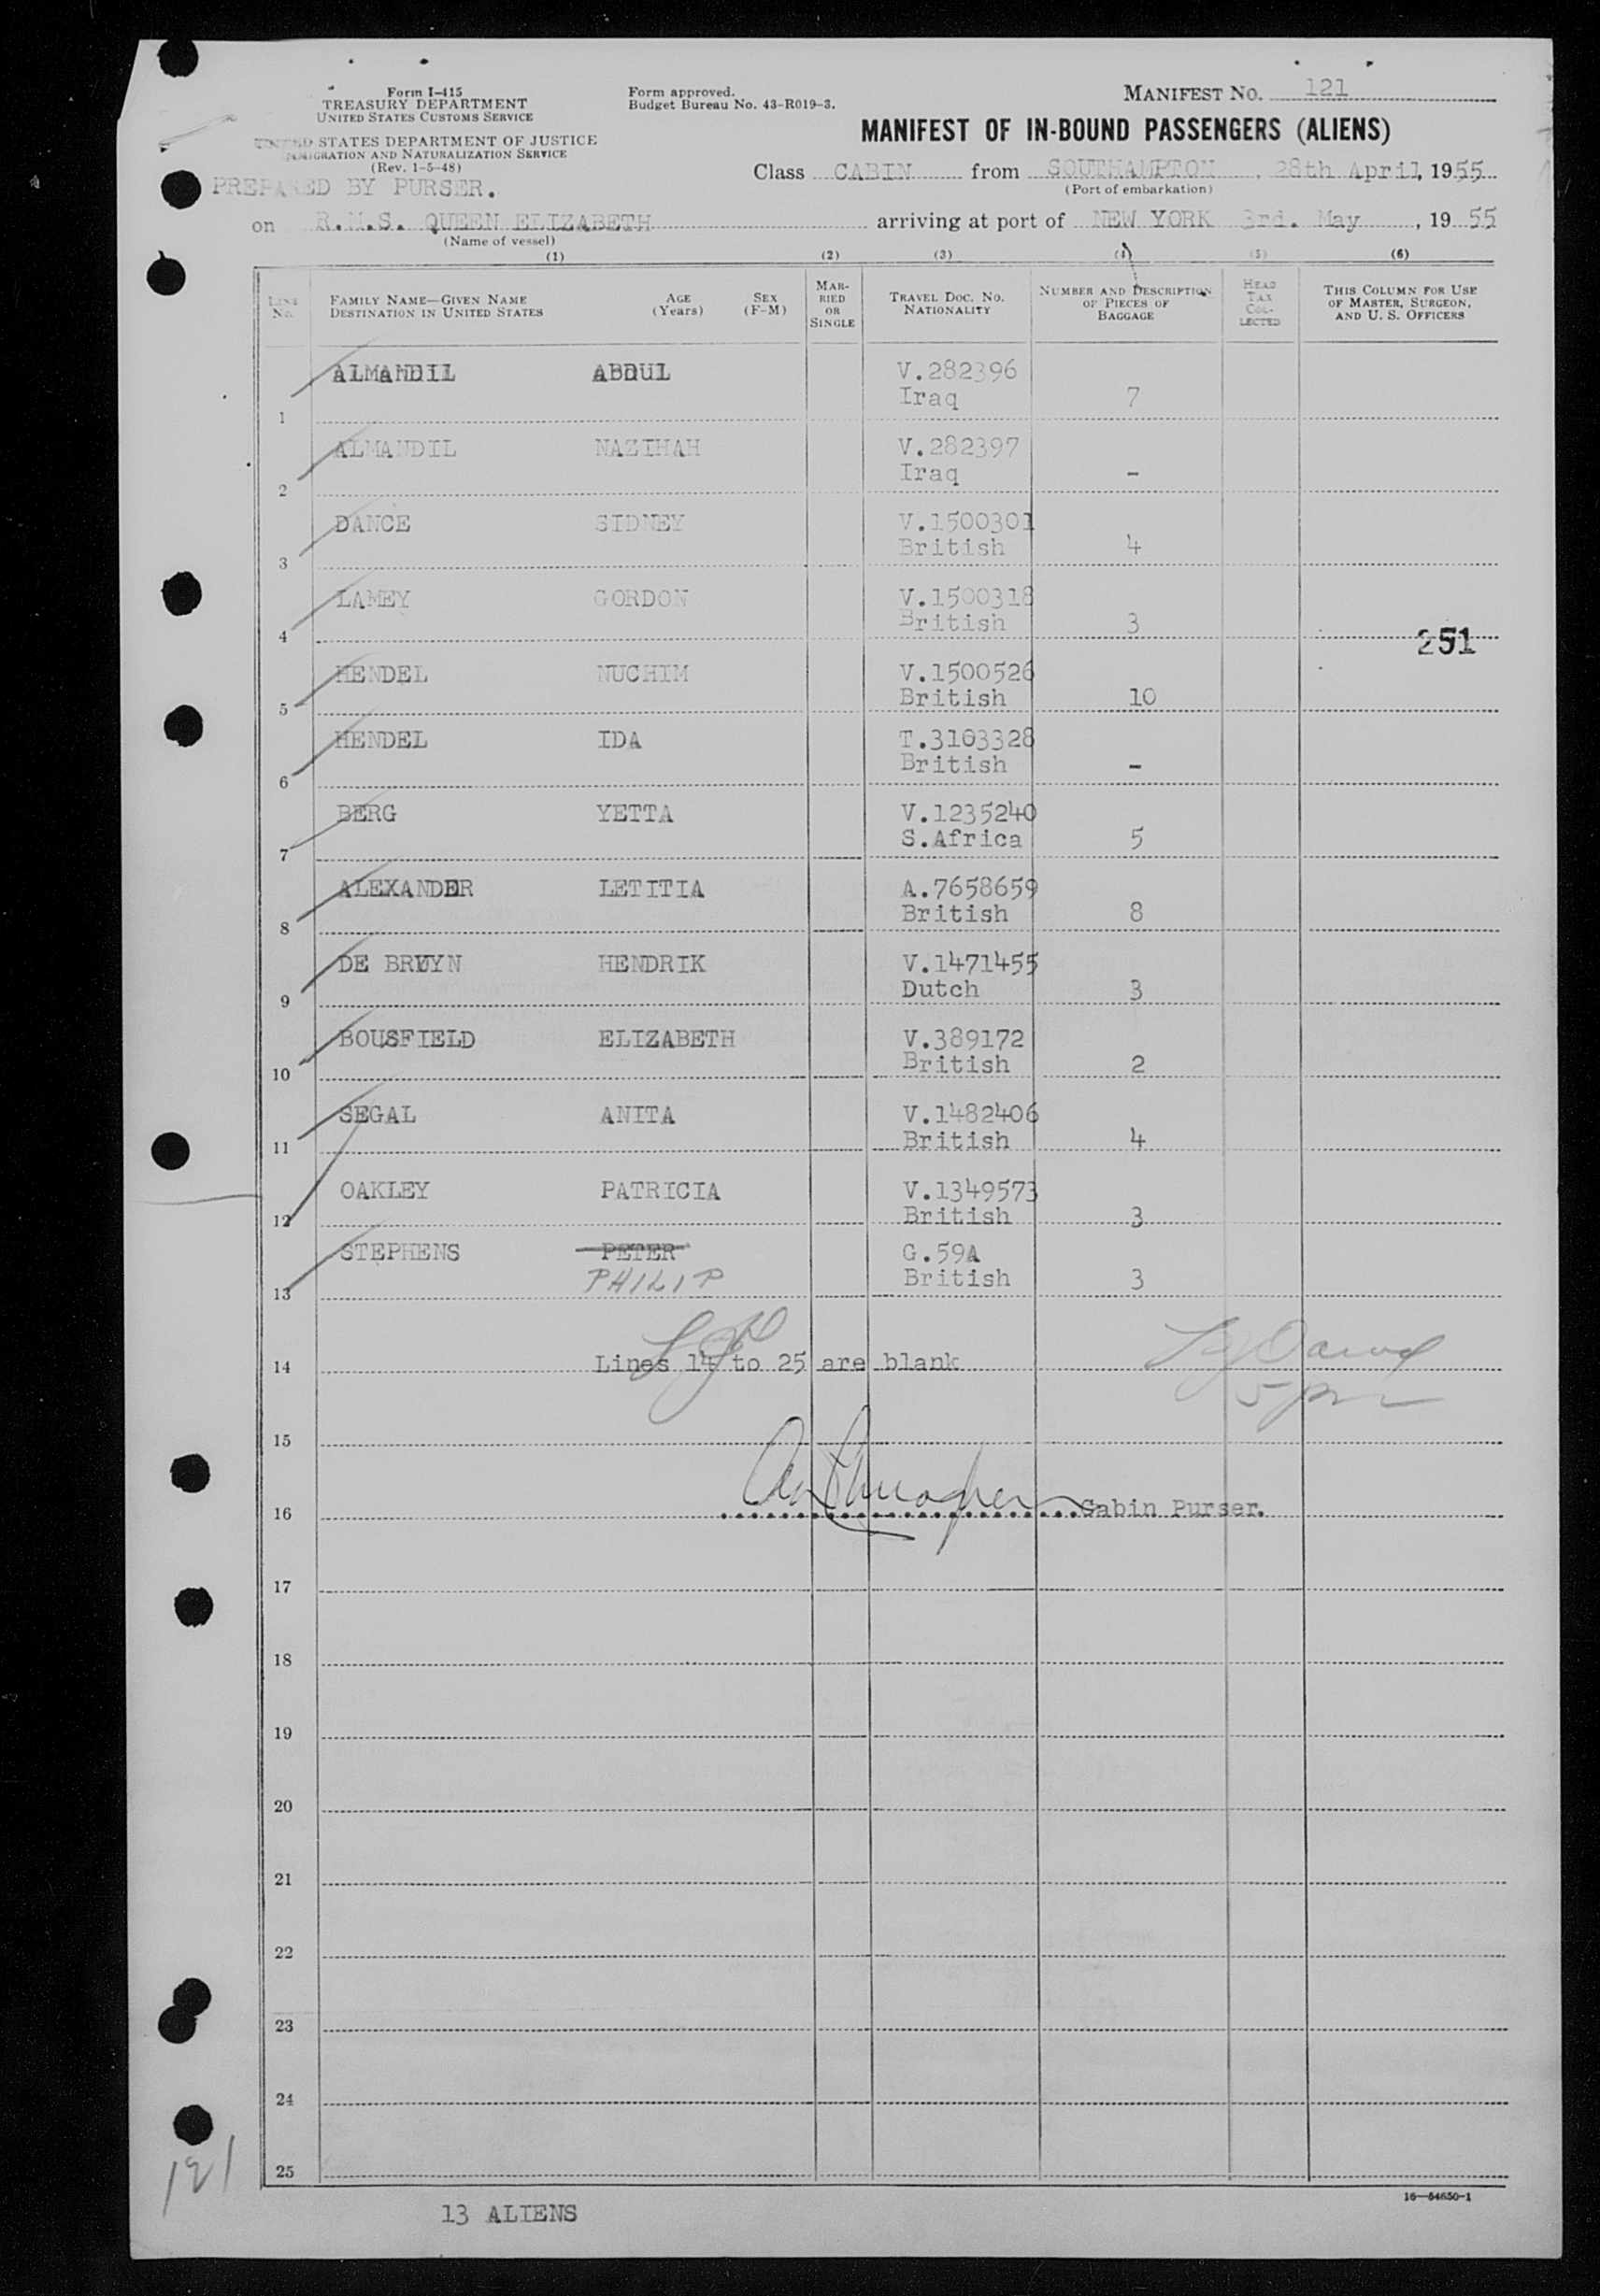 Form I-415
TREASURY DEPARTMENT
UNITED STATES CUSTOMS SERVICE
UNITED STATES DEPARTMENT OF JUSTICE
IMMIGRATION AND NATURALIZATION SERVICE
(Rev. 1-5-48)
PREPARED BY PURSER.
Form approved.
Budget Bureau No. 43-R019-3.
MANIFEST NO. 121
MANIFEST OF IN-BOUND PASSENGERS (ALIENS)
Class CABIN from SOUTHAMPTON, 28th April, 1955
(Port of embarkation)
on R.M.S. QUEEN ELIZABETH arriving at port of NEW YORK 3rd. May, 1955
(Name of vessel)
(1) (2) (3) (4) (5) (6)
LINE No. FAMILY NAME—GIVEN NAME DESTINATION IN UNITED STATES AGE (Years) SEX (F-M) MARRIED OR SINGLE TRAVEL DOC. NO. NATIONALITY NUMBER AND DESCRIPTION OF PIECES OF BAGGAGE HEAD TAX COLLECTED THIS COLUMN FOR USE OF MASTER, SURGEON, AND U. S. OFFICERS
ALMANDIL ABDUL V.282396
1 Iraq 7
ALMANDIL NAZIHAH V.282397
2 Iraq -
DANCE SIDNEY V.1500301
3 British 4
LAMEY GORDON V.1500318
4 British 3
251
HENDEL NUCHIM V.1500526
5 British 10
HENDEL IDA T.3103328
6 British -
BERG YETTA V.1235240
7 S.Africa 5
ALEXANDER LETITIA A.7658659
8 British 8
DE BRUYN HENDRIK V.1471455
9 Dutch 3
BOUSFIELD ELIZABETH V.389172
10 British 2
SEGAL ANITA V.1482406
11 British 4
OAKLEY PATRICIA V.1349573
12 British 3
STEPHENS PETER G.59A
13 PHILIP British 3
14 Lines 14 to 25 are blank
5pm
15
16 Cabin Purser.
17
18
19
20
21
22
23
24
25
121
16—54650-1
13 ALIENS